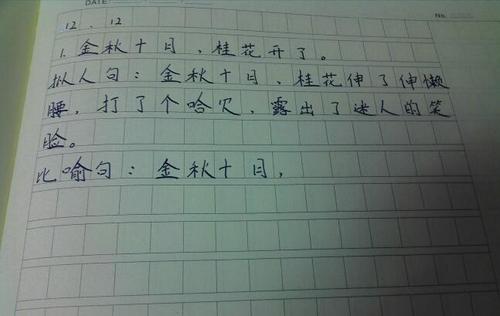 DATE
No.
12 . 12
1. 金秋十月，桂花开了。
拟人句：金秋十月，桂花伸了伸懒
腰，打了个哈欠，露出了迷人的笑
脸。
比喻句：金秋十月，